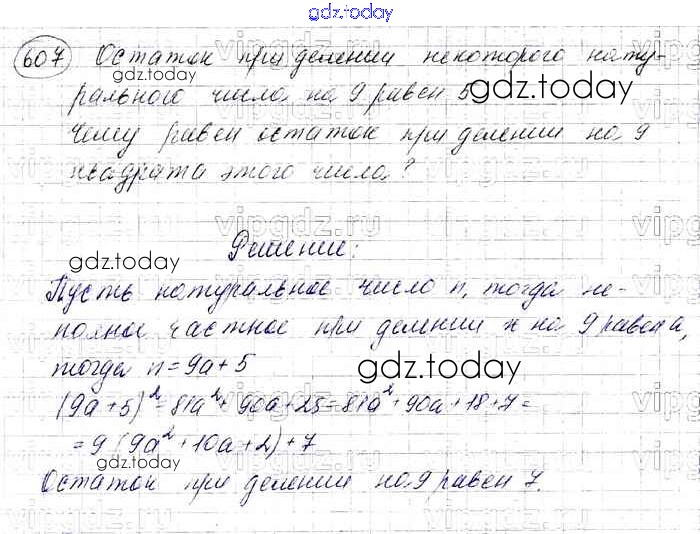 gdz.today
607 Остаток при делении некоторого нату-
gdz.today
рального числа на 9 равен 5
gdz.today
Чему равен остаток при делении на 9
квадрата этого числа?
vipgdz.ru
Решение:
gdz.today
Пусть натуральное число n, тогда не-
полное частное при делении n на 9 равен a,
тогда n = 9a + 5
gdz.today
(9a + 5)² = 81a² + 90a + 25 = 81a² + 90a + 18 + 7 =
= 9 (9a² + 10a + 2) + 7
gdz.today
Остаток при делении на 9 равен 7.
gdz.today